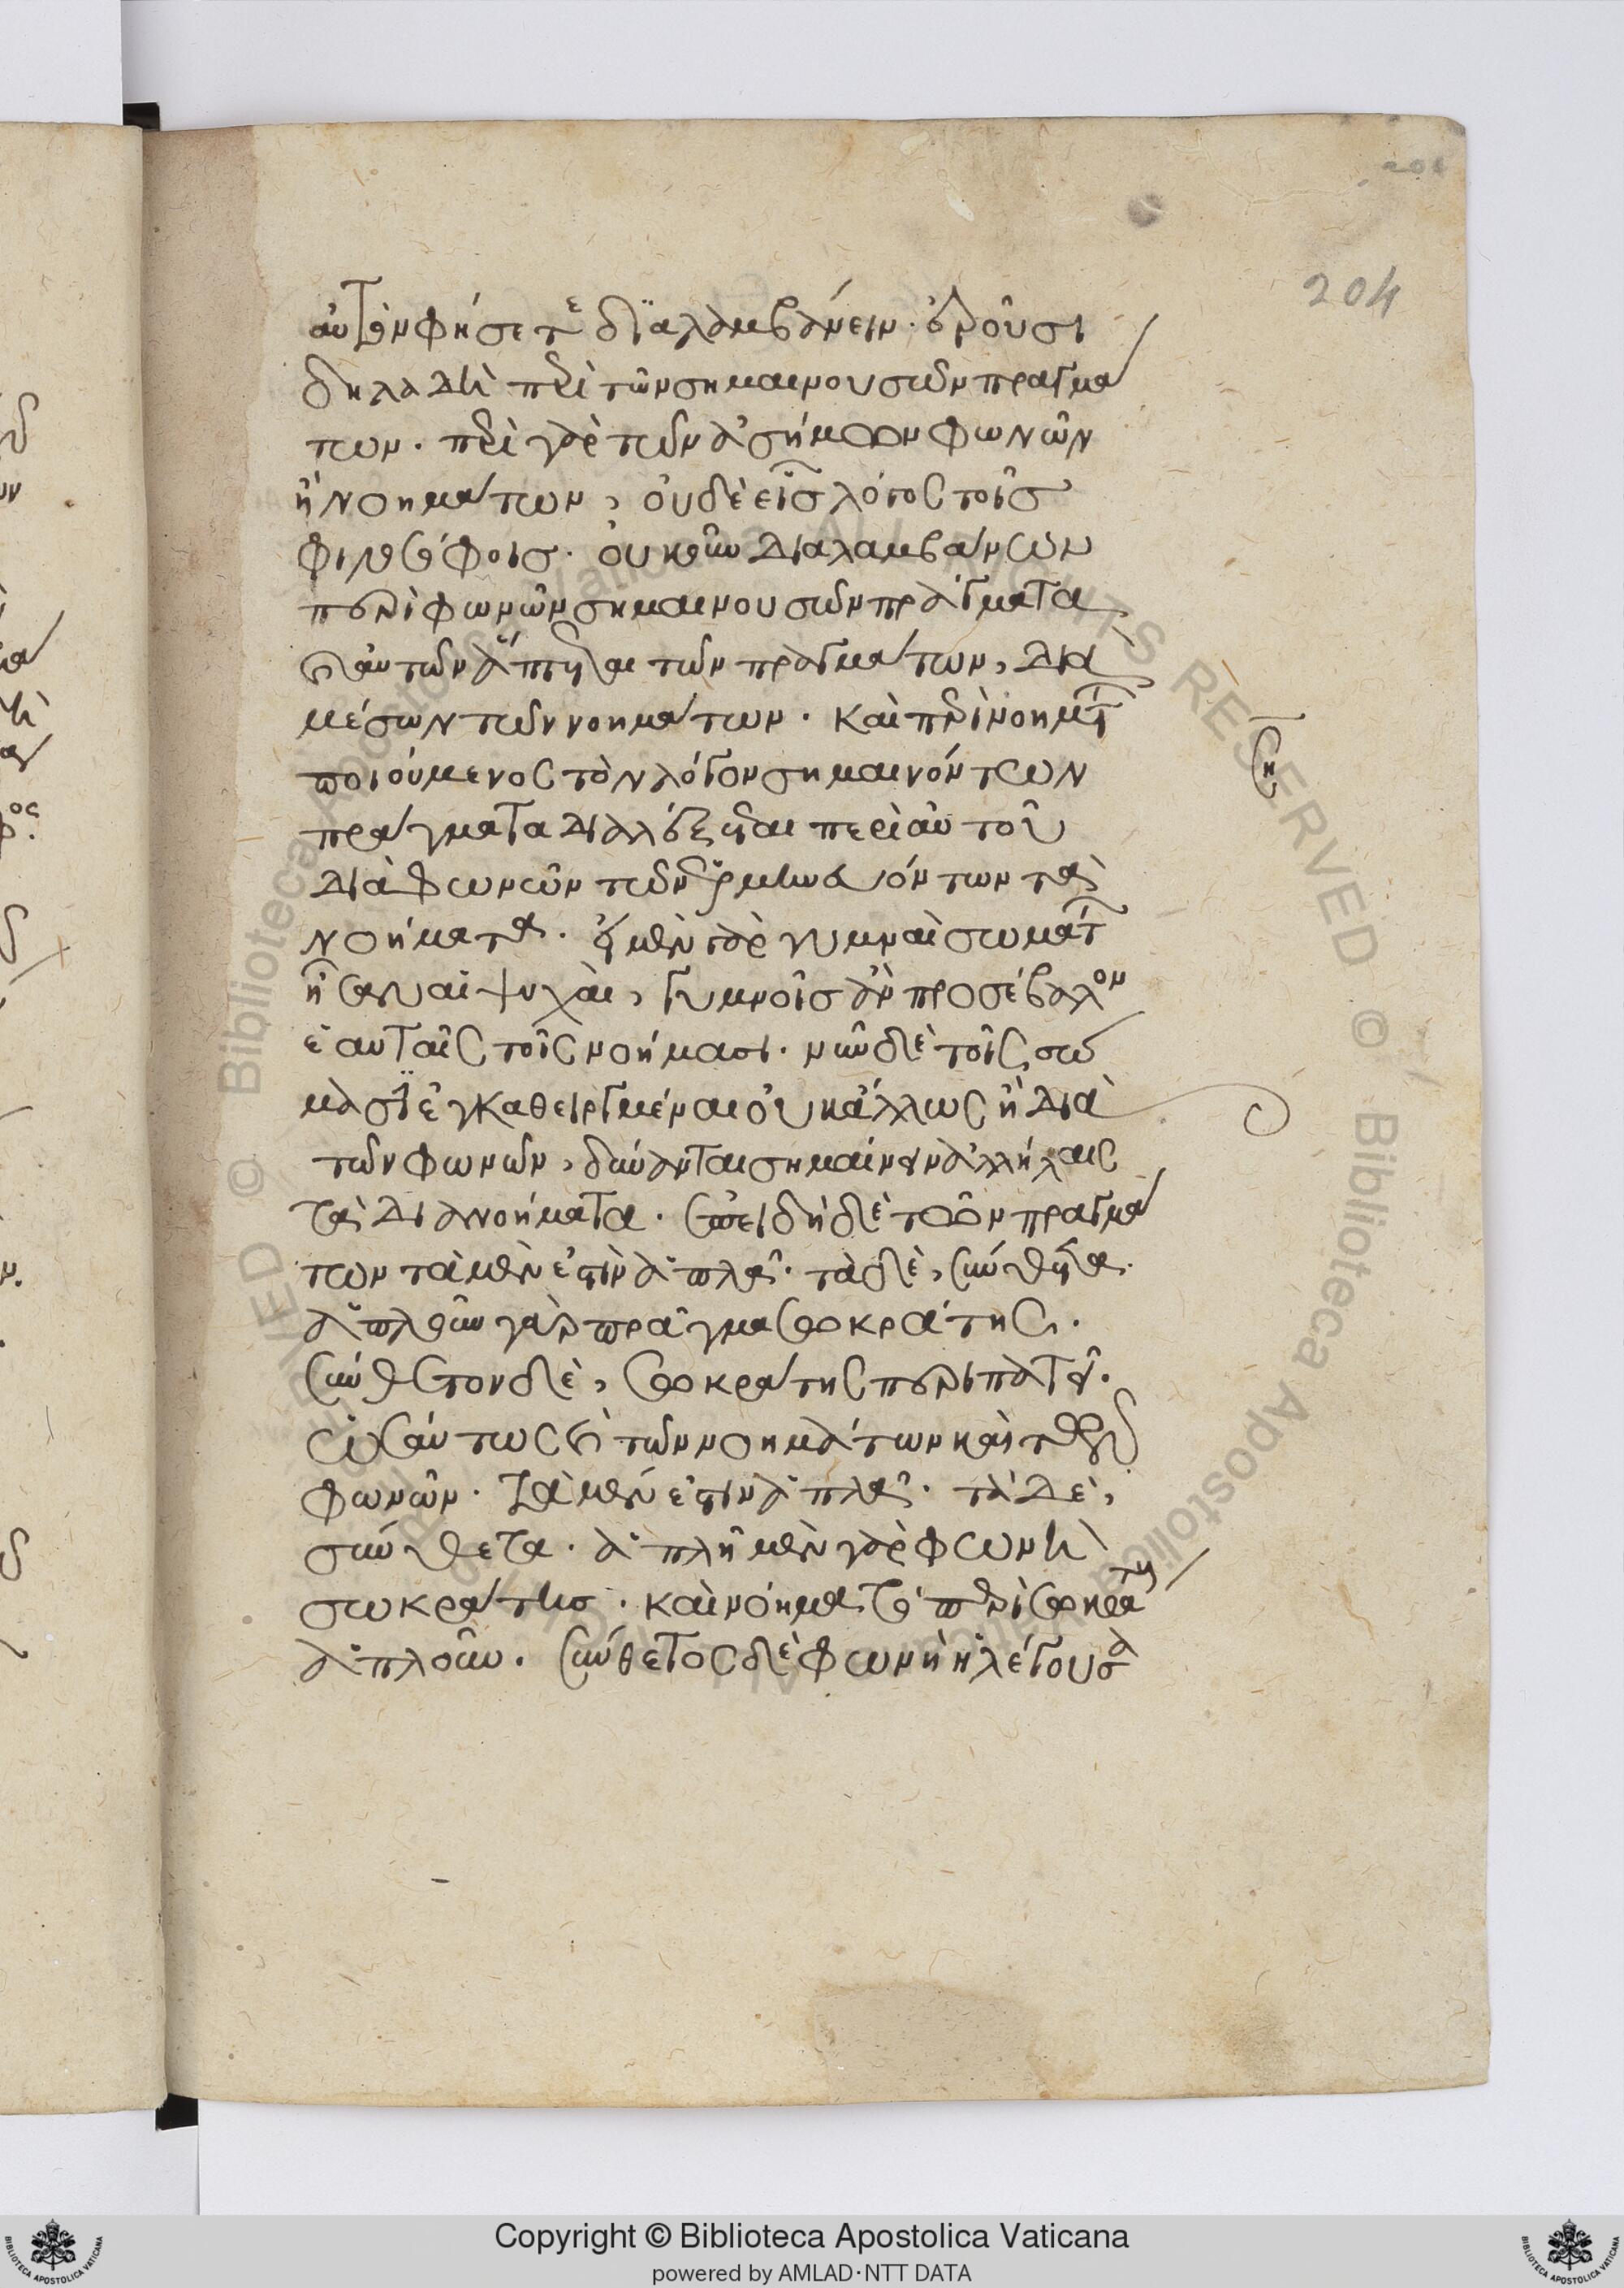 204
αὐτὸν φήσετε διαλαμβάνειν. ἐροῦσι
δηλαδὴ περὶ τῶν σημαινουσῶν πραγμά
των. περὶ γὰρ τῶν ἀσήμων φωνῶν
ἢ νοημάτων, οὐδὲ εἷς λόγος τοῖς
φιλοσόφοις. οὐκοῦν διαλαμβάνων
περὶ φωνῶν σημαινουσῶν πράγματα
καὶ αὐτῶν ἅπτεται τῶν πραγμάτων, διὰ
μέσων τῶν νοημάτων. καὶ περὶ νοημάτ
ποιούμενος τὸν λόγον σημαινόντων
πράγματα διαλέξεται περὶ αὐτοῦ
διὰ φωνῶν τῶν ἑρμηνευόντων τὰ
νοήματα. εἰ μὲν γὰρ γυμναὶ σωμάτ
ἦσαν αἱ ψυχαὶ, γυμνοῖς ἂν προσέβαλον
ἑαυταῖς τοῖς νοήμασι. νῦν δὲ τοῖς σώ
μασϊ ἐγκαθειργμέναι οὐκ ἄλλως ἢ διὰ
τῶν φωνῶν, δύνανται σημαίνειν ἀλλήλαις
τὰ διανοήματα. ἐπειδὴ δὲ τῶν πραγμά
των τὰ μὲν ἐστὶν ἁπλᾶ. τὰ δὲ, σύνθετα.
ἁπλοῦν γὰρ πρᾶγμα σωκράτης.
σύνθετον δὲ, σωκράτης περιπατεῖ.
ὡσαύτως καὶ τῶν νοημάτων καὶ τῶν
φωνῶν. τὰ μέν ἐστιν ἁπλᾶ. τὰ δὲ,
σύνθετα. ἁπλῆ μὲν γὰρ φωνὴ
σωκράτης. καὶ νόημα τὸ περὶ σωκράτη
ἁπλοῦν. σύνθετος δὲ φωνὴ ἡ λέγουσα